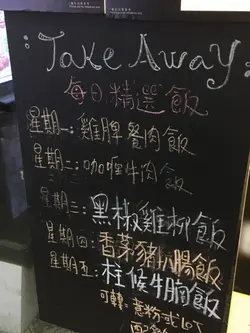 Take Away
每日精選飯
星期一：雞脾餐肉飯
星期二：咖喱牛肉飯
星期三：黑椒雞柳飯
星期四：香茅豬扒腸飯
星期五：柱侯牛腩飯
可轉：意粉